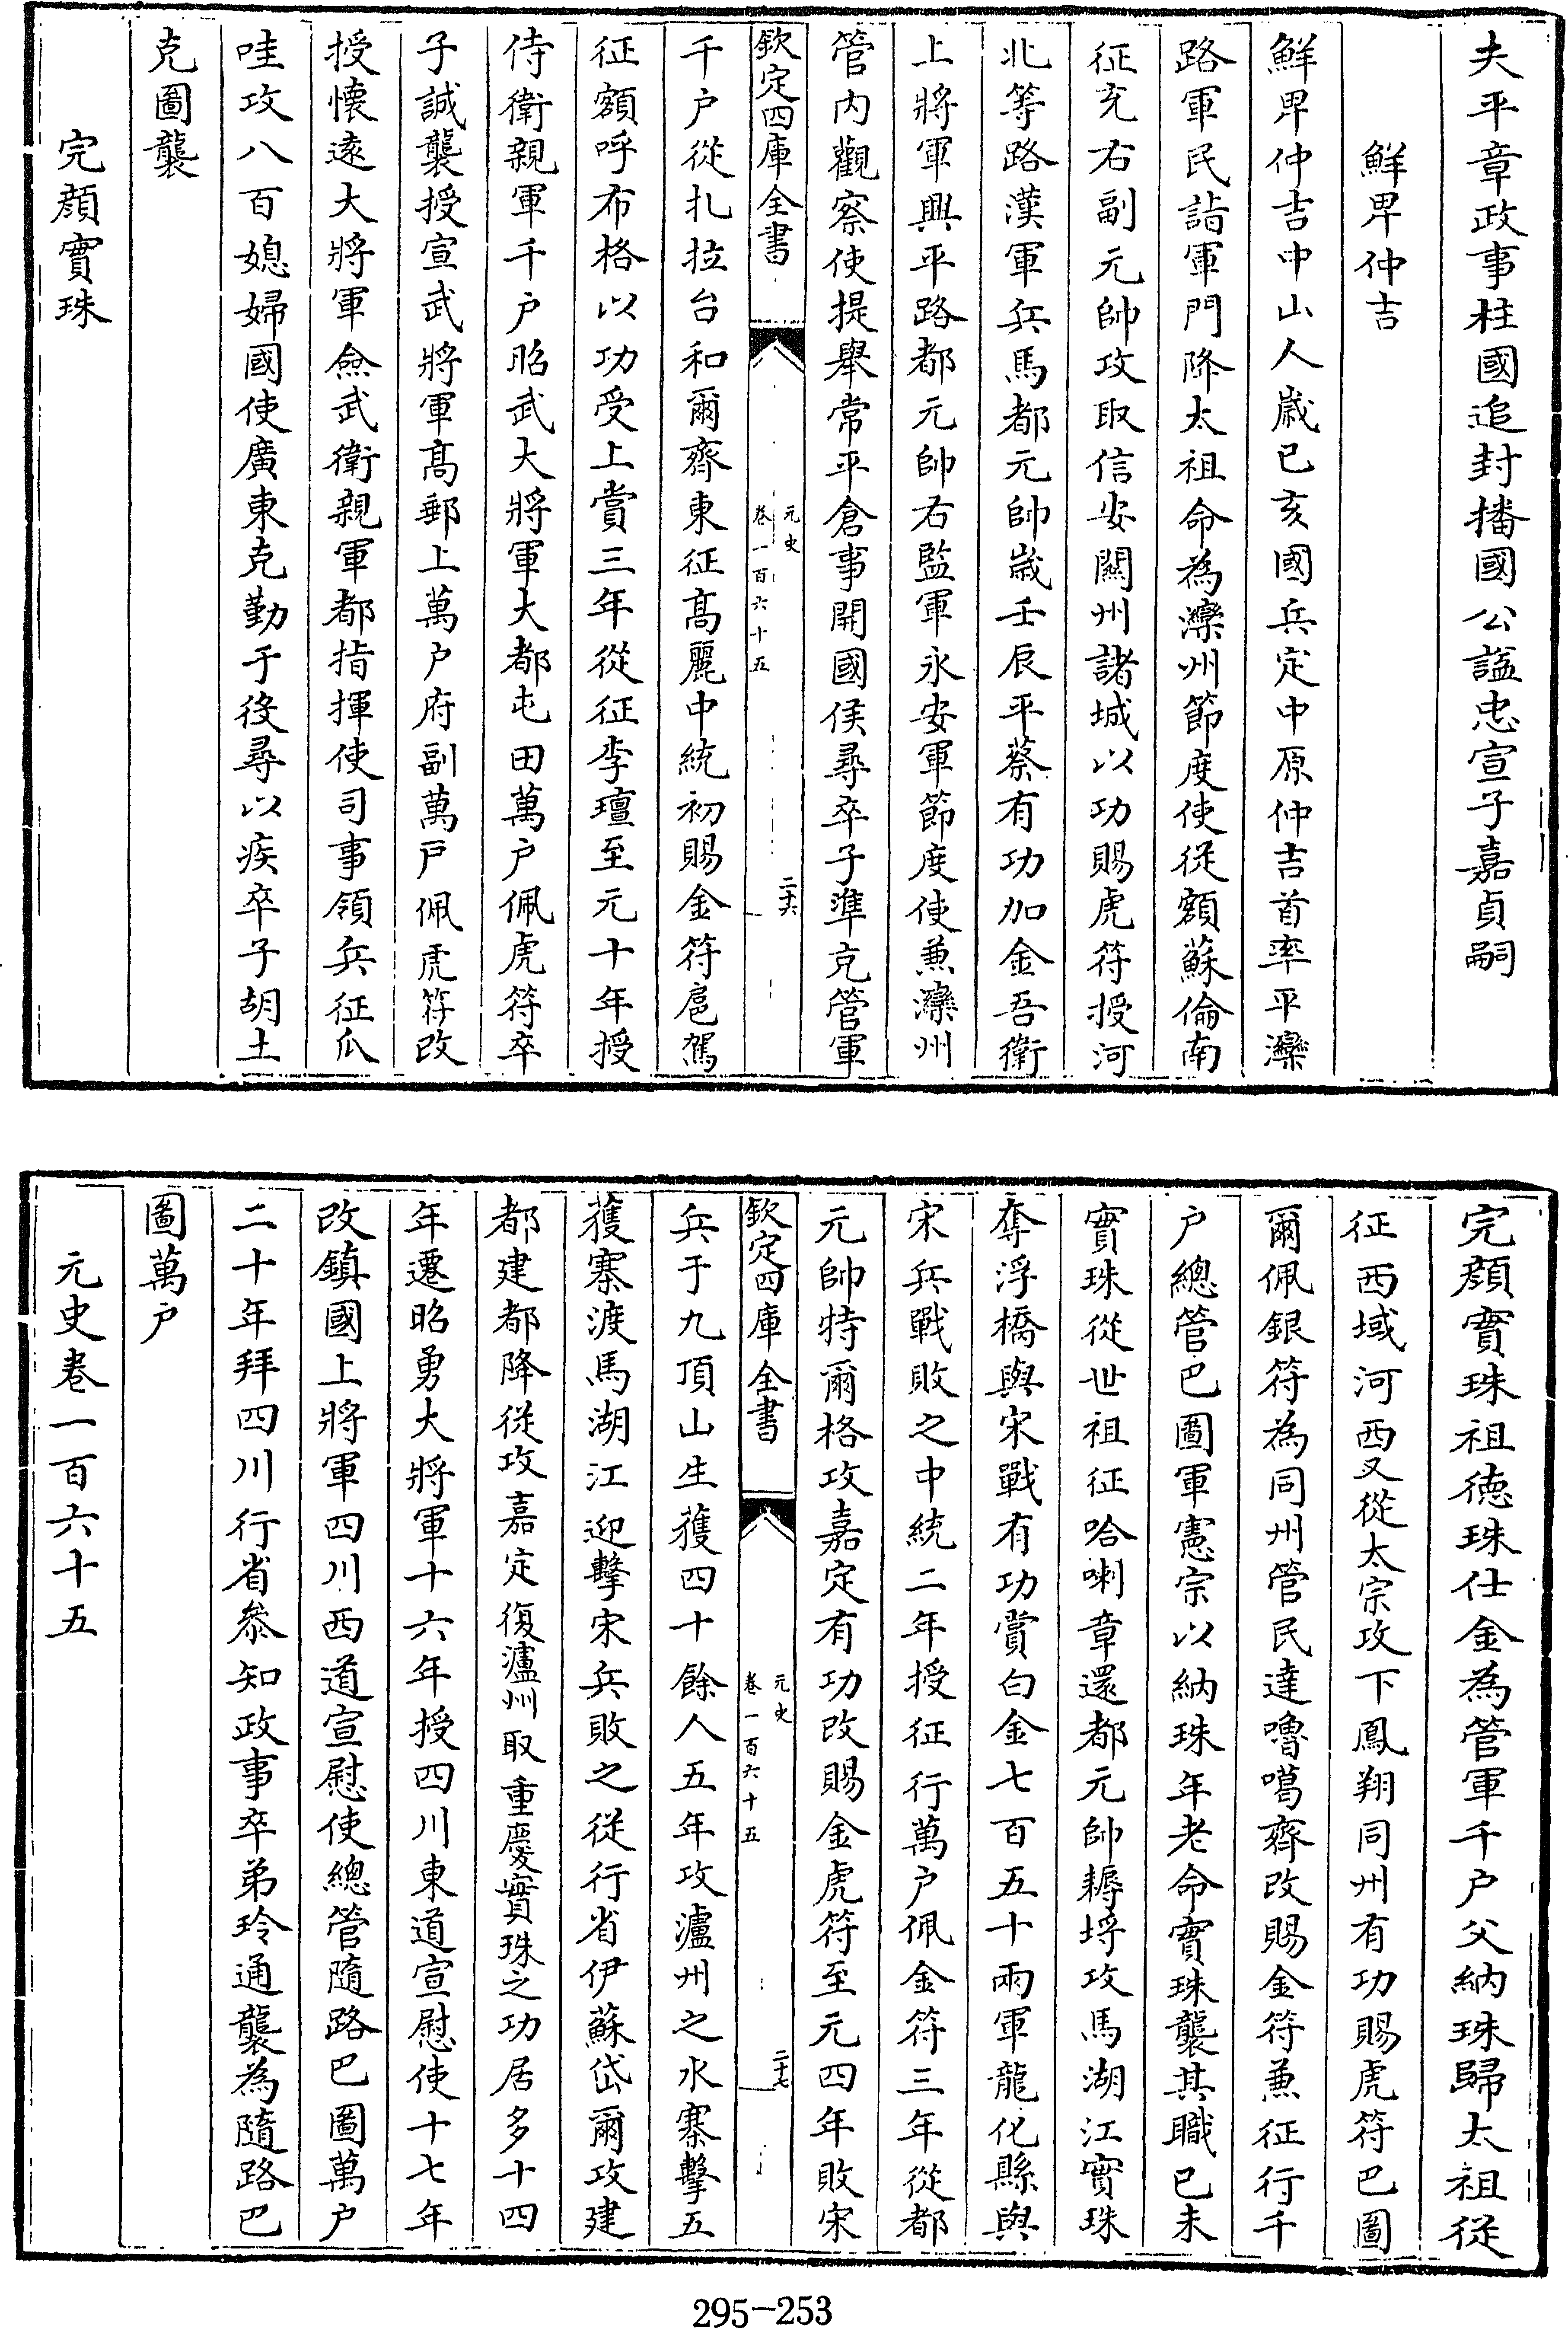 夫平章政事柱國追封播國公諡忠宣子嘉貞嗣
鮮卑仲吉
鮮卑仲吉中山人歲已亥國兵定中原仲吉首率平灤
路軍民詣軍門降太祖命為灤州節度使從額蘇倫南
征充右副元帥攻取信安關州諸城以功賜虎符授河
北等路漢軍兵馬都元帥歲壬辰平蔡有功加金吾衛
上將軍興平路都元帥右監軍永安軍節度使兼灤州
管內觀察使提舉常平倉事開國侯尋卒子準充管軍
欽定四庫全書
元史
卷一百六十五
二十六
千户從扎拉台和爾齊東征高麗中統初賜金符扈駕
征額呼布格以功受上賞三年從征李璮至元十年授
侍衛親軍千户昭武大將軍大都屯田萬户佩虎符卒
子誠襲授宣武將軍高郵上萬户府副萬戸佩虎符改
授懷遠大將軍僉武衛親軍都指揮使司事領兵征爪
哇攻八百媳婦國使廣東克勤于役尋以疾卒子胡土
克圖襲
完顏實珠
完顏實珠祖德珠仕金為管軍千户父納珠歸太祖從
征西域河西又從太宗攻下鳳翔同州有功賜虎符巴圖
爾佩銀符為同州管民達嚕噶齊改賜金符兼征行千
户總管巴圖軍憲宗以納珠年老命實珠襲其職已未
實珠從世祖征哈喇章還都元帥耨埒攻馬湖江實珠
奪浮橋與宋戰有功賞白金七百五十兩軍龍化縣與
宋兵戰敗之中統二年授征行萬户佩金符三年從都
元帥特爾格攻嘉定有功改賜金虎符至元四年敗宋
欽定四庫全書
元史
卷一百六十五
二十七
兵于九頂山生獲四十餘人五年攻瀘州之水寨擊五
獲寨渡馬湖江迎擊宋兵敗之從行省伊蘇岱爾攻建
都建都降從攻嘉定復瀘州取重慶實珠之功居多十四
年遷昭勇大將軍十六年授四川東道宣慰使十七年
改鎮國上將軍四川西道宣慰使總管隨路巴圖萬户
二十年拜四川行省參知政事卒弟玲通襲為隨路巴
圖萬户
元史卷一百六十五
295-253